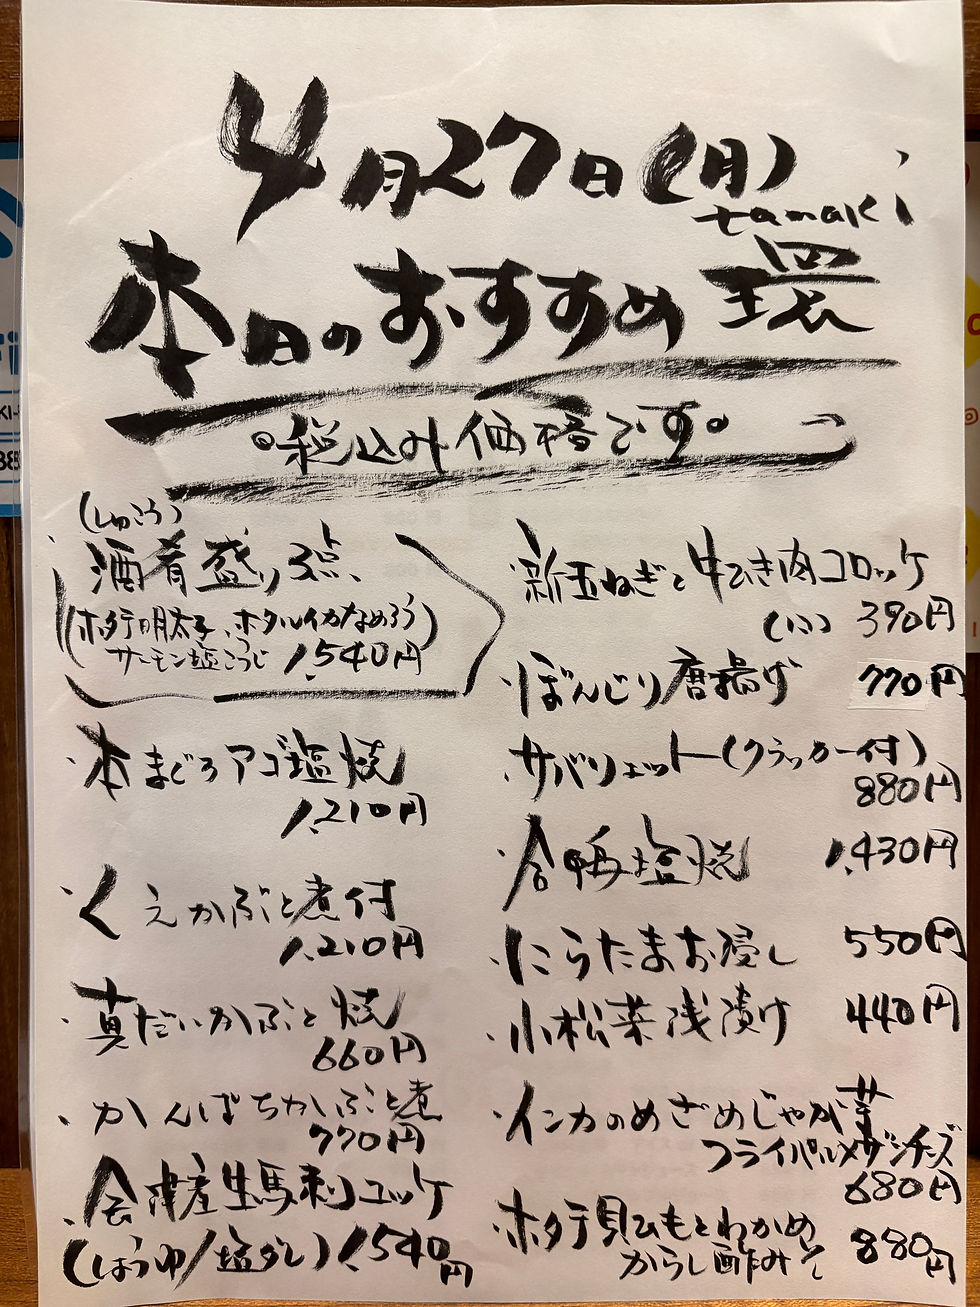 4月27日(月)
tamaki
本日のおすすめ 環
税込み価格です
(しゅこう)
酒肴盛り3点
(ホタテ明太子、ホタルイカなめろう)
サーモン塩こうじ 1,540円
・本まぐろアゴ塩焼
1,210円
・くえかぶと煮付
1,210円
・真だいかぶと焼
660円
・かんぱちかぶと煮
770円
・会津産生馬刺ユッケ
(しょうゆ/塩ダレ) 1,540円
・新玉ねぎと牛ひき肉コロッケ
(1コ) 390円
・ぼんじり唐揚げ 770円
・サバリエット(クラッカー付)
880円
・合鴨塩焼 1,430円
・にらたまお浸し 550円
・小松菜浅漬け 440円
・インカのめざめじゃが芋
フライパルメザンチーズ
680円
・ホタテ貝ひもとわかめ
からし酢みそ 880円